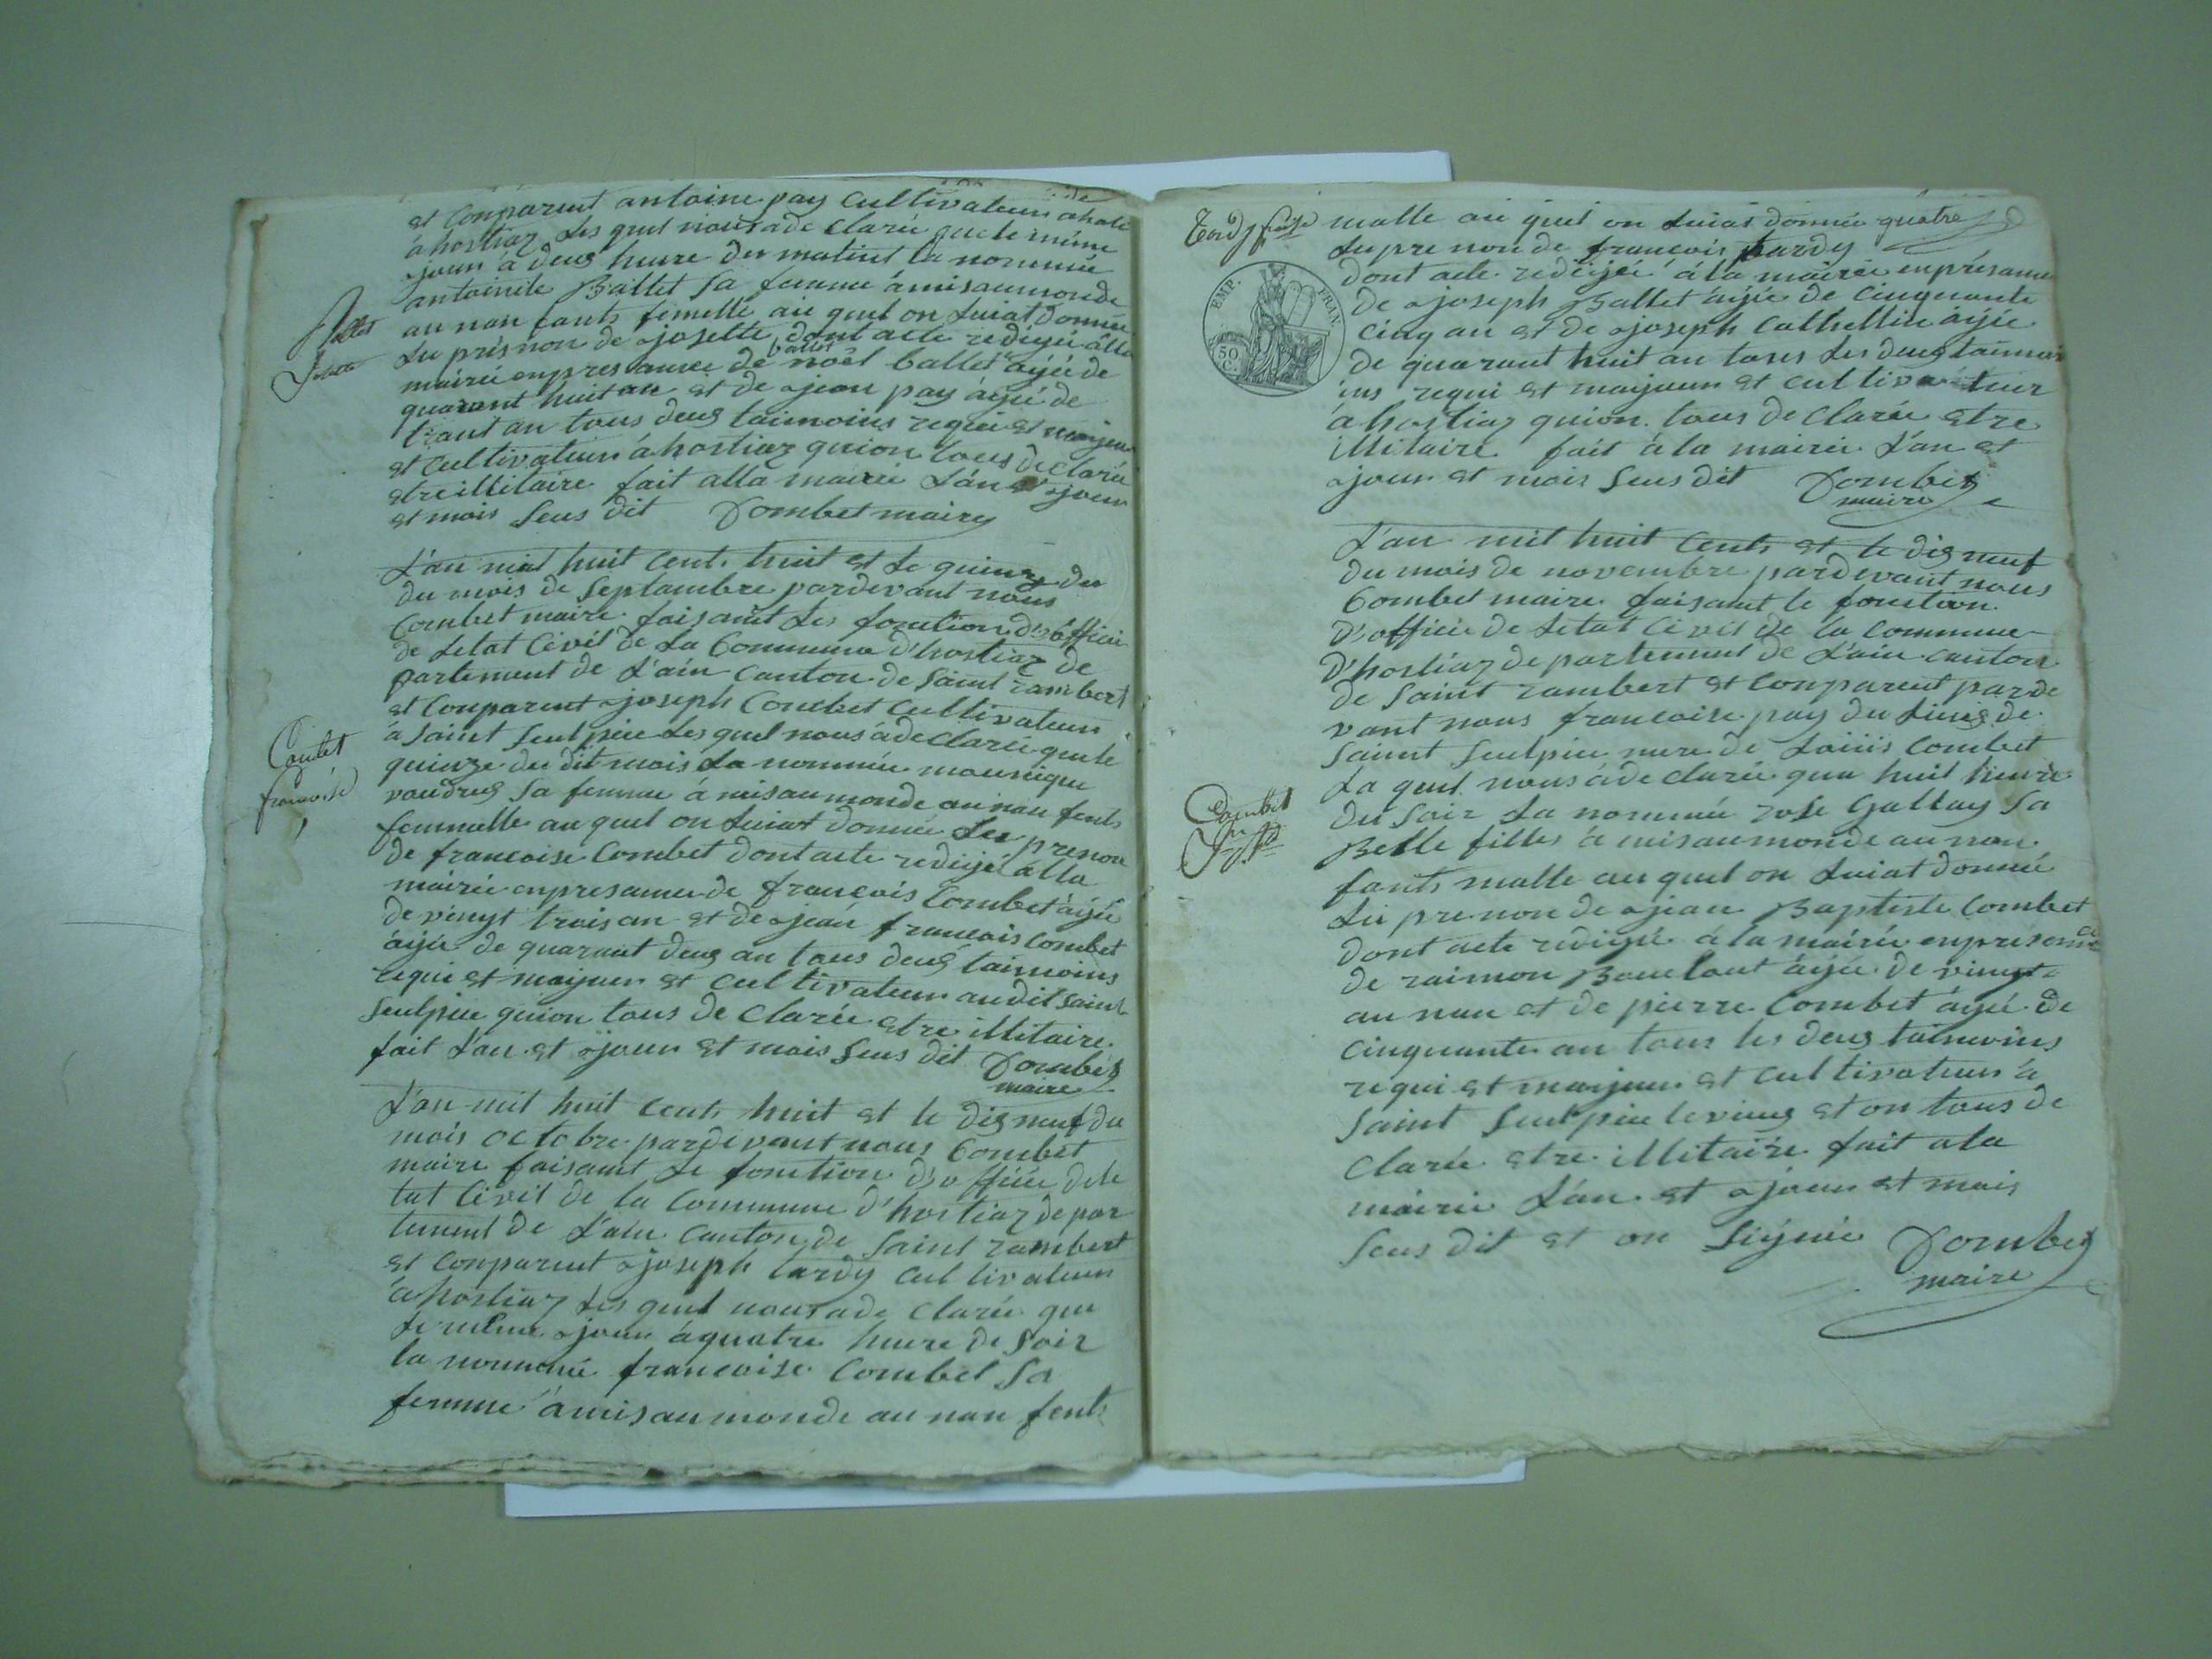 et Conparent antoine pay Cultivateur
à hostiaz Les quel nous a de Clarée que le même
jour à deus heure du matint la nommée
antoinete Ballet Sa femme à mis au monde
au nan fants femelle au quel on Luiat donnée
Ballet
Josette
Le présnon de josette dont acte redigée alla
ballet
mairie enpresance de noël ballet âgée de
quarant huit an et de jean pay âgée de
trant an tous deus taimoins requi et majeur
et Cultivateur à hostiaz quion tous de Clarée
etre illitaire fait alla mairie L'an et jour
et mois Sus dit Combet maire
L'an mil huit Cents huit et Le quinze du
du mois de Septambre pardevant nous
Combet maire faisant Les fonction d'officie
de Letat Civil de La Commune d'hostiaz de
partement de L'ain Canton de Saint rambert
et Conparent joseph Combet Cultivateur
à Saint Sulpice Les quel nous à de Clarée que le
quinze du dit mois La nommée mounique
Combet
francoise
vaudrey Sa femme à mis au monde au nan fents
femmelle au quel on Luiat donnée Le prenon
de francoise Combet dont acte redigé alla
mairie enpresance de francois Combet âgée
de vingt trois an et de jean francois Combet
âgée de quarant deus an tous deus taimoins
requi et majeur et Cultivateur au dit Saint
Sulpice quion tous de Clarée etre illitaire
fait L'an et jour et mois Sus dit Combet
maire
L'an mil huit Cents huit et le dis neuf du
mois octobre pardevant nous Combet
maire faisant Le fonction d'officie de le
tat Civil de la Commune d'hostiaz de par
tement de L'ain Canton de Saint rambert
et Conparent joseph tardy Cultivateur
à hostiaz Les quel nous a de Clarée que
Le même jour à quatre heure de Soir
la nommée francoise Combet Sa
femme à mis au monde au nan fents
malle au quel on Luiat donnée quatre
Le pre non de francois tardy
EMP. FRAN.
50 C.
dont acte redigée à la mairie enprésance
de joseph Ballet âgée de Cinquante
Cinq an et de joseph Cathelline âgée
de quarant huit an tous Les deus taimoi
ins requi et majeur et Cultivateur
à hostiaz quion tous de Clarée etre
illitaire fait à la mairie L'an et
jour et mois Sus dit Combet
maire
L'an mil huit Cents et le dis neuf
du mois de novembre pardevant nous
Combet maire faisant le fonction
d'officie de Letat Civil de la Commune
d'hostiaz departement de L'ain Canton
de Saint rambert et Conparent parde
vant nous francoise pay du Lieus de
Saint Sulpice mere de Louis Combet
La quel nous à de Clarée qua huit heure
Combet
du Soir La nommée rose Gallay Sa
Belle filles à mis au monde au nan
fants malle au quel on Luiat donnée
Le pre non de jean Baptiste Combet
dont acte redigée à la mairie enprésance
de raimon Boulout âgée de vingt
an nan et de pierre Combet âgée de
Cinquante an tous les deus taimoins
requi et majeur et Cultivateur à
Saint Sulpice levieus et on tous de
Clarée etre illitaire fait a la
mairie L'an et jour et mois
Sus dit et on Signée Combet
maire